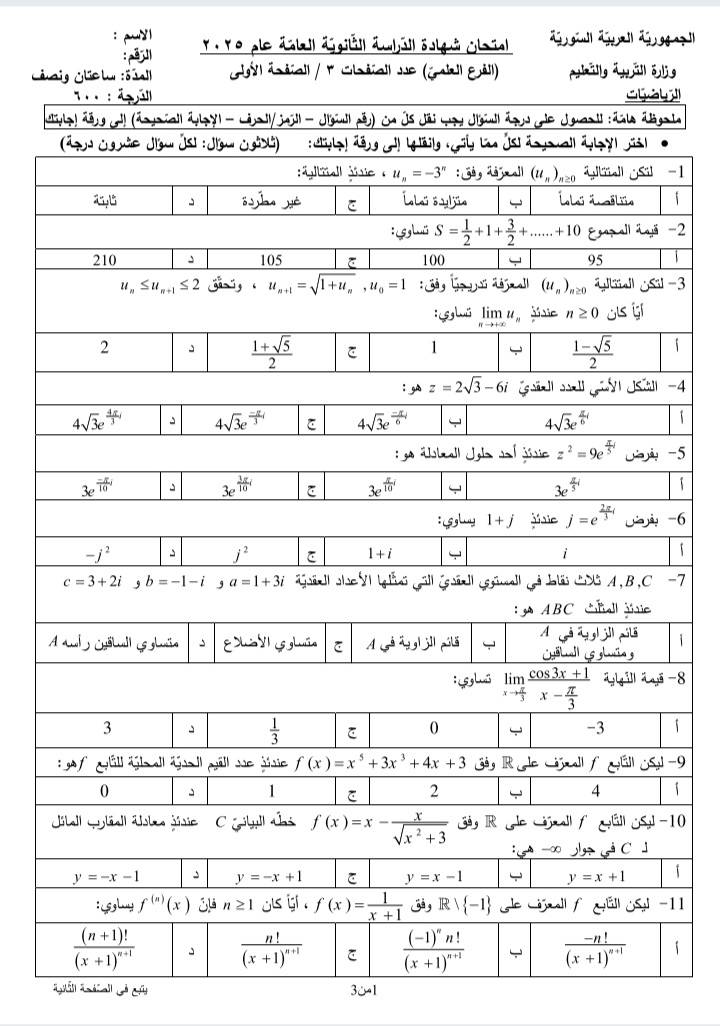 الجمهوريّة العربيّة السّوريّة
وزارة التّربية والتّعليم
الرّياضيّات
امتحان شهادة الدّراسة الثّانويّة العامّة عام ٢٠٢٥
(الفرع العلميّ) عدد الصّفحات ٣ / الصّفحة الأولى
الاسم :
الرّقم:
المدّة: ساعتان ونصف
الدّرجة : ٦٠٠
ملحوظة هامّة: للحصول على درجة السّؤال يجب نقل كلّ من (رقم السّؤال – الرّمز/الحرف – الإجابة الصّحيحة) إلى ورقة إجابتك
• اختر الإجابة الصحيحة لكلّ ممّا يأتي، وانقلها إلى ورقة إجابتك: (ثلاثون سؤال: لكلّ سؤال عشرون درجة)
1– لتكن المتتالية (u_n)_{n≥0} المعرّفة وفق: u_n = −3^n ، عندئذٍ المتتالية:
أ متناقصة تماماً ب متزايدة تماماً ج غير مطّردة د ثابتة
2– قيمة المجموع S = 1/2 + 1 + 3/2 + ...... + 10 تساوي:
أ 95 ب 100 ج 105 د 210
3– لتكن المتتالية (u_n)_{n≥0} المعرّفة تدريجيّاً وفق: u_0 = 1 , u_{n+1} = √(1+u_n) ، وتحقّق u_n ≤ u_{n+1} ≤ 2
أيّاً كان n ≥ 0 عندئذٍ lim_{n→+∞} u_n تساوي:
أ (1−√5)/2 ب 1 ج (1+√5)/2 د 2
4– الشّكل الأسّي للعدد العقديّ z = 2√3 − 6i هو :
أ 4√3e^{π/6 i} ب 4√3e^{−π/6 i} ج 4√3e^{−π/3 i} د 4√3e^{4π/3 i}
5– بفرض z² = 9e^{π/5 i} عندئذٍ أحد حلول المعادلة هو :
أ 3e^{π/5 i} ب 3e^{π/10 i} ج 3e^{3π/10 i} د 3e^{−π/10 i}
6– بفرض j = e^{2π/3 i} عندئذٍ 1+j يساوي:
أ i ب 1+i ج j² د −j²
7– A,B,C ثلاث نقاط في المستوي العقديّ التي تمثّلها الأعداد العقديّة a = 1+3i و b = −1−i و c = 3+2i
عندئذٍ المثلّث ABC هو :
أ قائم الزاوية في A ومتساوي السّاقين ب قائم الزاوية في A ج متساوي الأضلاع د متساوي الساقين رأسه A
8– قيمة النّهاية lim_{x→π/3} (cos3x + 1)/(x − π/3) تساوي:
أ −3 ب 0 ج 1/3 د 3
9– ليكن التّابع f المعرّف على ℝ وفق f(x) = x⁵ + 3x³ + 4x + 3 عندئذٍ عدد القيم الحديّة المحليّة للتّابع f هو :
أ 4 ب 2 ج 1 د 0
10– ليكن التّابع f المعرّف على ℝ وفق f(x) = x − x/√(x²+3) خطّه البيانيّ C عندئذٍ معادلة المقارب المائل
لـ C في جوار −∞ هي:
أ y = x + 1 ب y = x − 1 ج y = −x + 1 د y = −x − 1
11– ليكن التّابع f المعرّف على ℝ\{−1} وفق f(x) = 1/(x+1) ، أيّاً كان n ≥ 1 فإنّ f^{(n)}(x) يساوي:
أ −n!/(x+1)^{n+1} ب (−1)^n n!/(x+1)^{n+1} ج n!/(x+1)^{n+1} د (n+1)!/(x+1)^{n+1}
1من3
يتبع في الصّفحة الثّانية